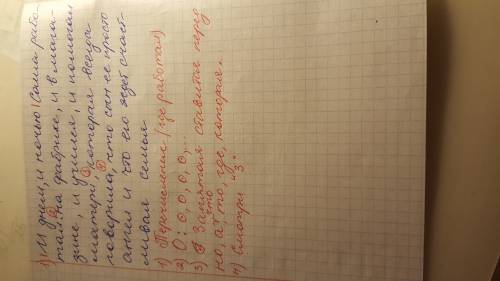 1) И днем, и ночью (Саша рабо-
тал на фабрике, и в мага-
зине, и учился, и помогал
матери, которая всегда
говорила, что сын ее просто
ангел и что его ждет счаст-
ливая семья
1) Перечисление (где работал)
2) О: о, о, о, о, ..
3) Запятая ставится перед
что
но, а, то, где, которая.
4) Смотри "3"